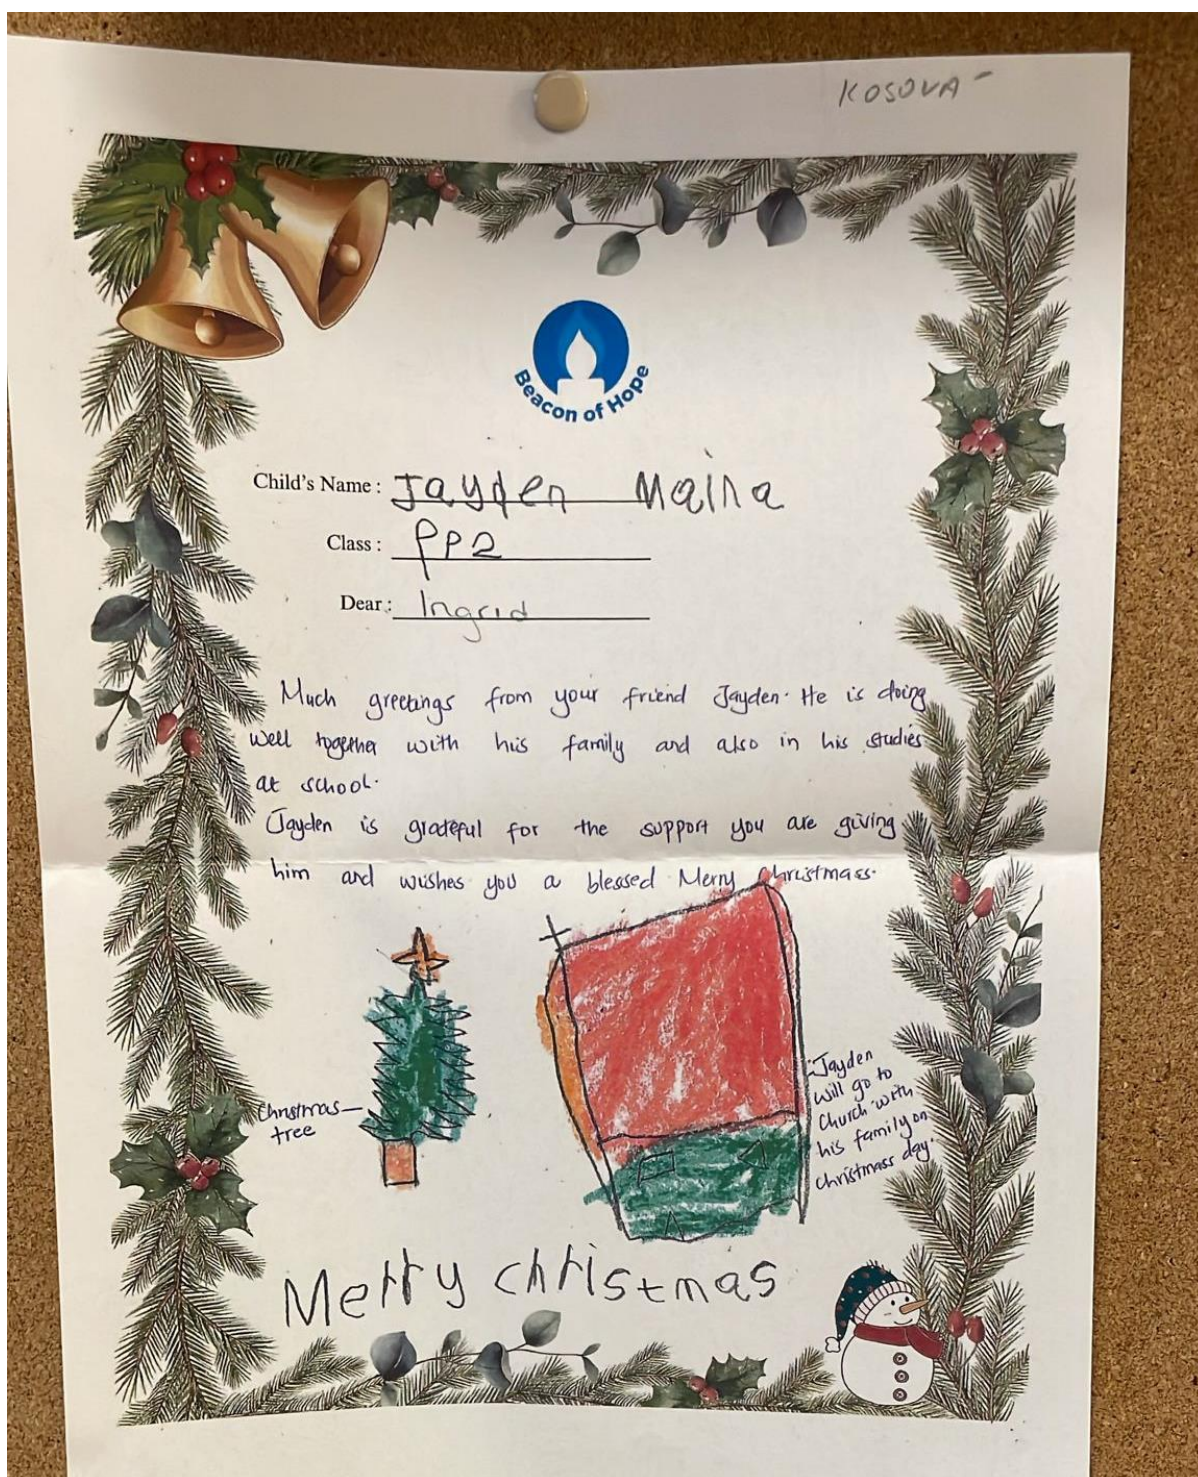 KOSOVA
Beacon of Hope
Child's Name : Jayden Maina
Class : PP2
Dear : Ingrid
Much greetings from your friend Jayden. He is doing
well together with his family and also in his studies
at school.
Jayden is grateful for the support you are giving
him and wishes you a blessed Merry Christmass.
Christmas
tree
Jayden
will go to
Church with
his family on
christmass day.
Merry christmas